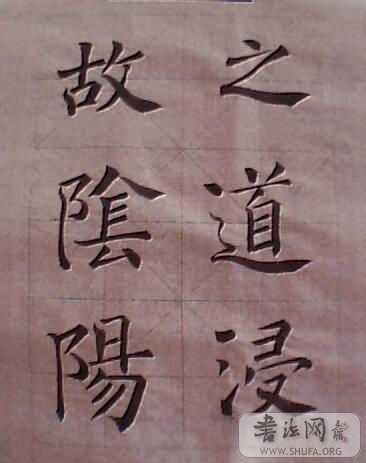 之道浸
故陰陽
書法网
WWW.SHUFA.ORG